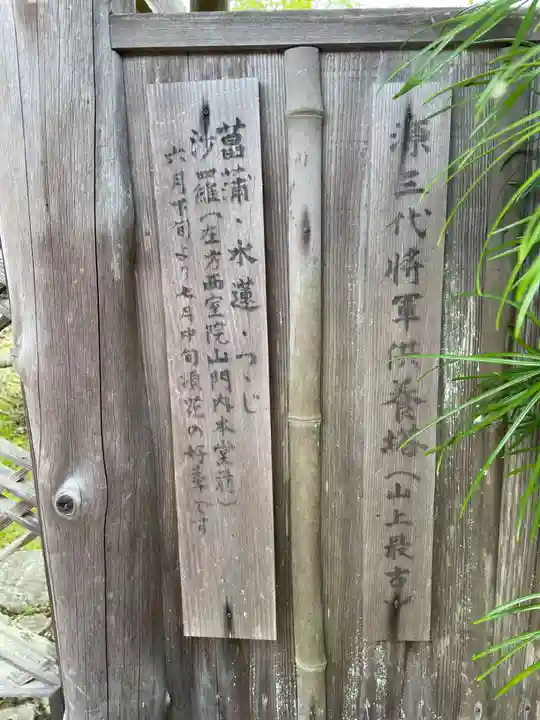 源三代将軍供養塔(山上最古)
菖蒲・水蓮・つゝじ
沙羅(左方西室院山門内本堂前)
六月下旬より七月中旬頃花の好季です